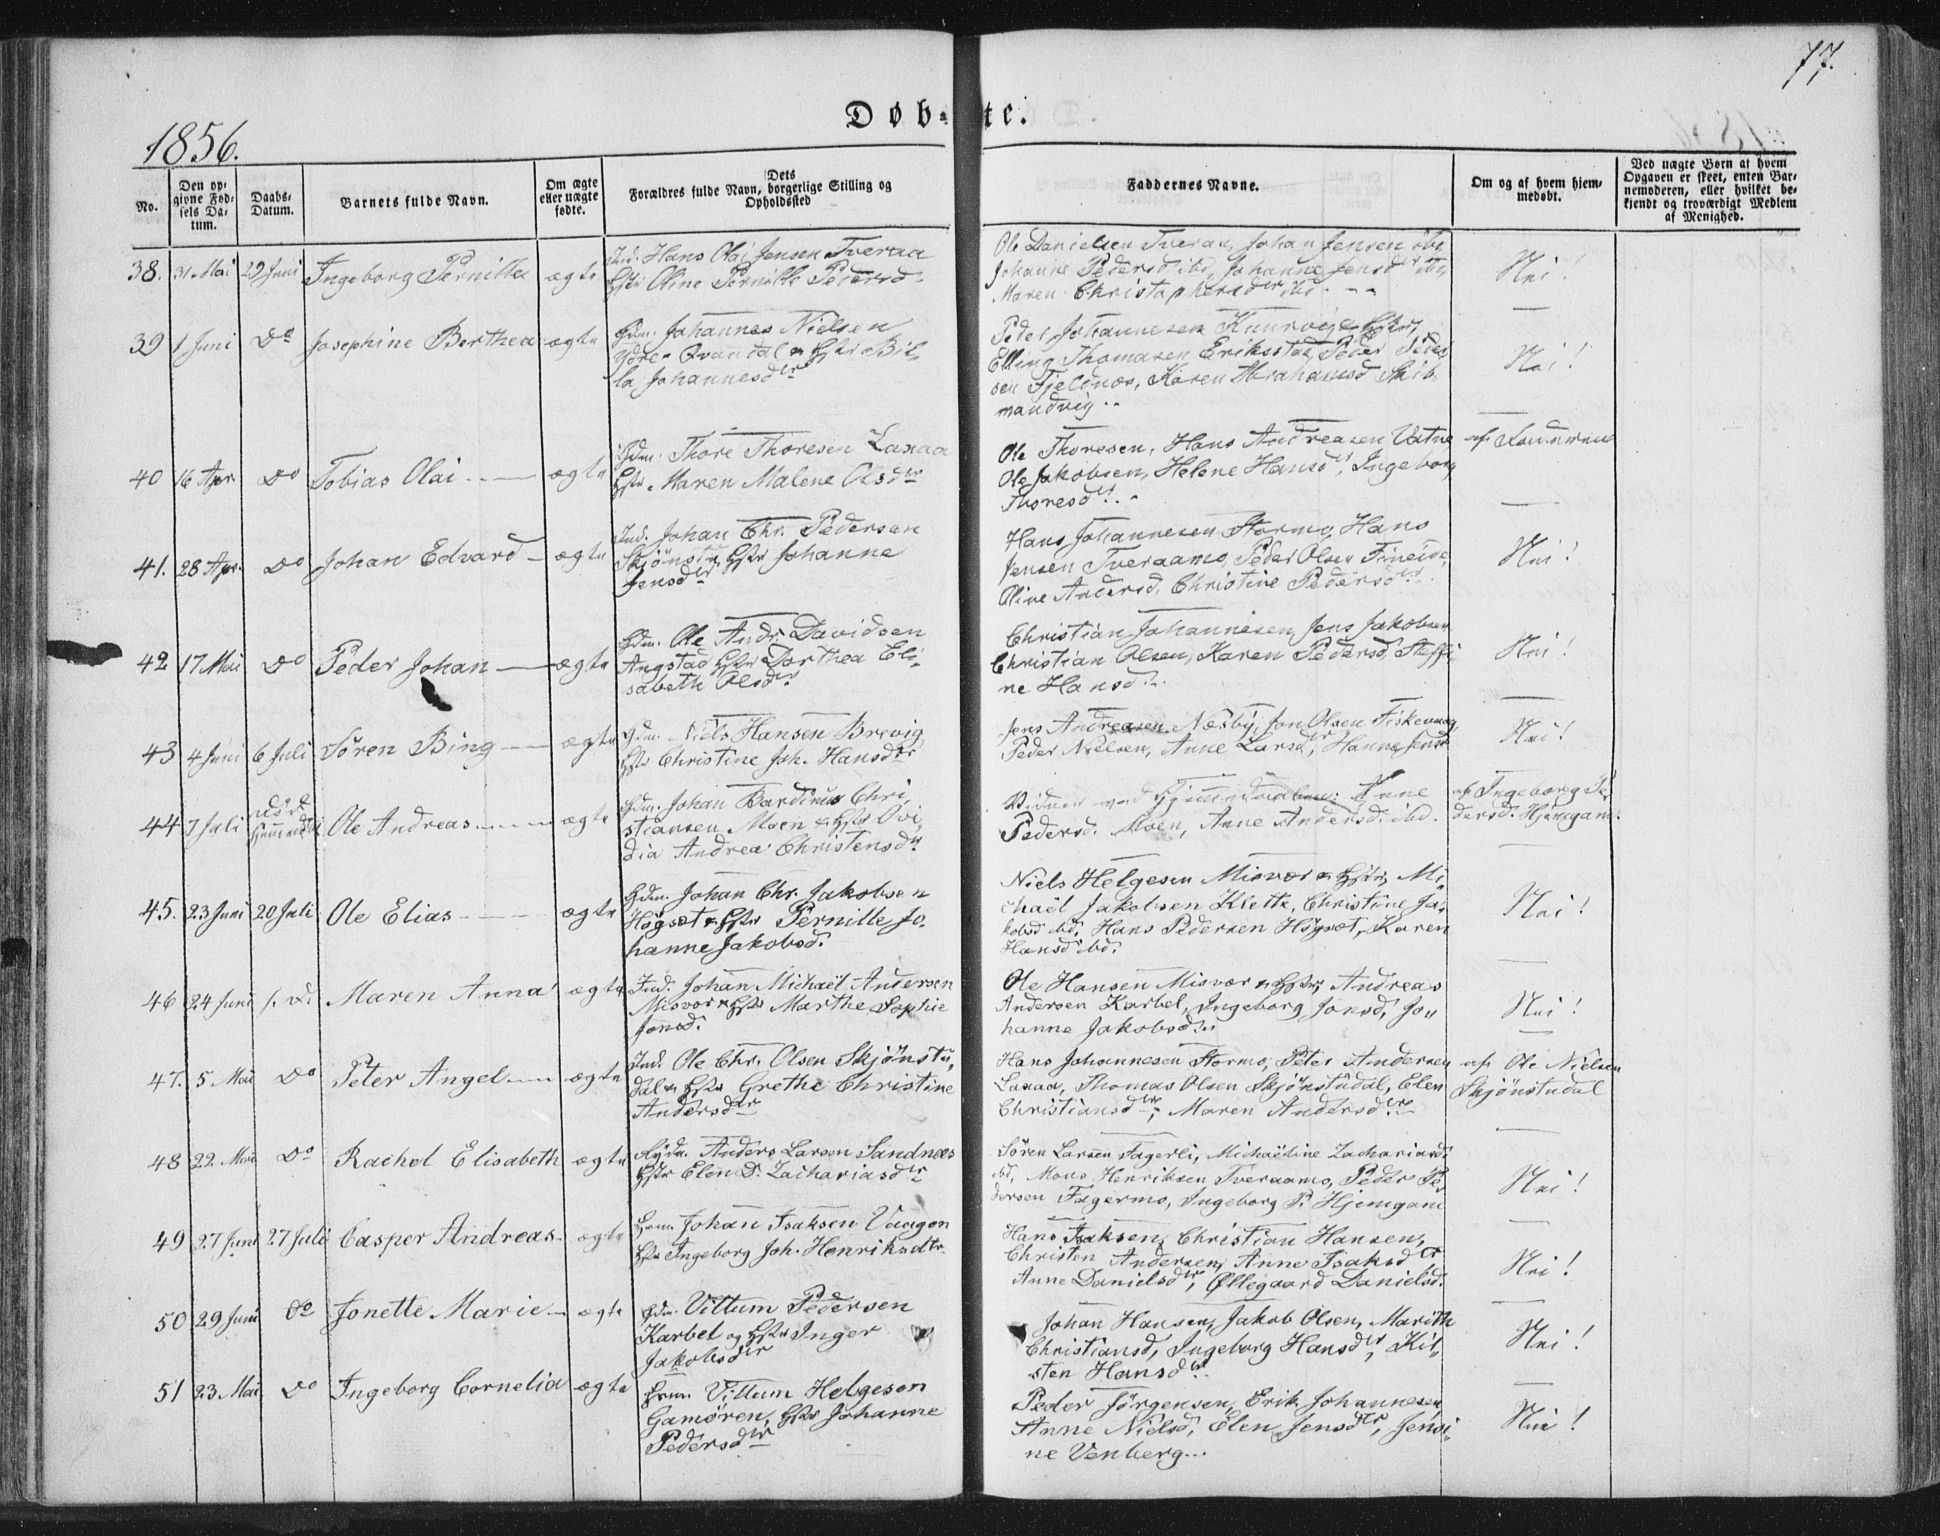 77.
Døb- te.
1856.
No.
Den op-
givne Fød-
sels Da-
tum.
Daabs-
Datum.
Barnets fulde Navn.
Om ægte
eller uægte
fødte.
Dets
Forældres fulde Navn, borgerlige Stilling og
Opholdssted
Faddernes Navne.
Om og af hvem hjem-
medøbt.
Ved uægte Børn at hvem
Opgaven er skeet, enten Bar-
nemoderen, eller hvilket be-
kjendt og troværdigt Medlem
af Menighed.
38. 31 Mai 29 Juni Ingeborg Pernilla ægte
Ind. Hans Olai Jensen Tveraa
Hstr Oline Pernille Pedersd
Ole Danielsen Tveraa, Johan Jensen ibd,
Johanne Pedersd ibd, Johanne Jensdtr ibd,
Maren Christophersdtr ibd.
Nei!
39 1 Juni Do Josephine Berthea ægte
Gdm. Johannes Nielsen
Ydre Qvandal & Hstr Bil-
la Johannesdtr
Peder Johannesen & Hstr,
Elling Thomasen Erikstad, Peder Peder
sen Fjeldnæs, Karen Abrahamsd Skib-
mandvig..
Nei!
40 16 Apr. Do Tobias Olai ægte
Gdm. Thore Thoresen Laxaa
Hstr Maren Malene Olsdtr
Ole Thoresen, Hans Andreasen Vatne
Ole Jakobsen, Helene Hansdtr, Ingeborg
Thoresdtr.
af Faderen
41. 28 Apr. Do Johan Edvard ægte
Ind. Johan Chr. Pedersen
Skjönst & Hstr Johanne
Jensdtr
Hans Johannesen Stormo, Hans
Jensen Tveraamo, Peder Olsen Fineide,
Oline Andersd, Christine Pedersdtr.
Nei!
42 17 Mai Do Peder Johan ægte
Gdm. Ole Andr. Davidsen
Angstad Hstr Dorthea Eli-
sabeth Olsdtr
Christian Johannesen, Jens Jakobsen
Christian Olsen, Karen Pedersd, Steffi-
ne Hansdtr.
Nei!
43 4 Juni 6 Juli Sören Bing ægte
Gdm. Niels Hansen Brevig
Hstr Christine Joh. Hansdtr
Jens Andreasen Næsby, Jon Olsen Fiskevaag,
Peder Nielsen, Anne Larsdtr, Hanna Jensd
Nei!
44 7 Juli Död Ole Andreas ægte
Gdm. Johan Bardinus Chri
stiansen Moen & Hstr Ovi-
dia Andrea Christensdtr
Vidner ved Hjemmedaaben: Anne
Pedersd. Moen, Anne Andersd. ibd.
af Ingeborg Pe
dersd. Hjemgam.
45. 23 Juni 20 Juli Ole Elias ægte
Gdm. Johan Chr. Jakobsen
Högset & Hstr Pernille Jo-
hanne Jakobsd.
Niels Helgesen Misvær & Hstr, Mi-
chaël Jakobsen Klette, Christine Ja-
kobsd ibd, Hans Pedersen Högset, Karen
Hansd ibd.
Nei!
46 24 Juni s. D. Maren Anna ægte
Ind. Johan Michaël Andersen
Misvær & Hstr Marthe Sophie
Jonsd.
Ole Hansen Misvær & Hstr, Andreas
Andersen Karbel, Ingeborg Jonsd, Jo-
hanne Jakobsd..
Nei!
47. 5 Mai Do Peter Angel ægte
Ind. Ole Chr. Olsen Skjönstu-
dal & Hstr Grethe Christine
Andersdtr
Hans Johannesen Stormo, Peter Andersen
Laxaa, Thomas Olsen Skjönstudal, Elen
Christiansdtr, Maren Andersdtr
af Ole Nielsen
Skjönstudal
48 22. Mai Do Rachel Elisabeth ægte
Anders Larsen Sandnæs
Hstr Elen D. Zachariasdtr
Sören Larsen Fagerli, Michaëline Zachariasd.
ibd, Mons Henriksen Tveraamo, Peder Pe-
dersen Fagermo, Ingeborg P. Hjemgam
Nei!
49 27 Juni 27 Juli Casper Andreas ægte
Johan Isaksen Vaagan
Hstr Ingeborg Joh. Henriksdtr.
Hans Isaksen, Christian Hansen,
Christen Andersen, Anne Isaksdtr
Anne Danielsdtr, Øllegaard Danielsd.
Nei!
50 29 Juni Do Jonette Marie ægte
Gdm. Vittum Pedersen
Karbel og Hstr Inger
Jakobsdtr
Johan Hansen, Jakob Olsen, Marith
Christiansd, Ingeborg Hansdtr, Kil-
sten Hansdtr.
Nei!
51 23 Mai Do Ingeborg Cornelia ægte
Vittum Helgesen
Gamören, Hstr Johanne
Pedersdtr
Peder Jörgensen, Erik Johannesen,
Anne Nielsd, Elen Jensdtr, Jensi-
ne Venberg...
Nei!